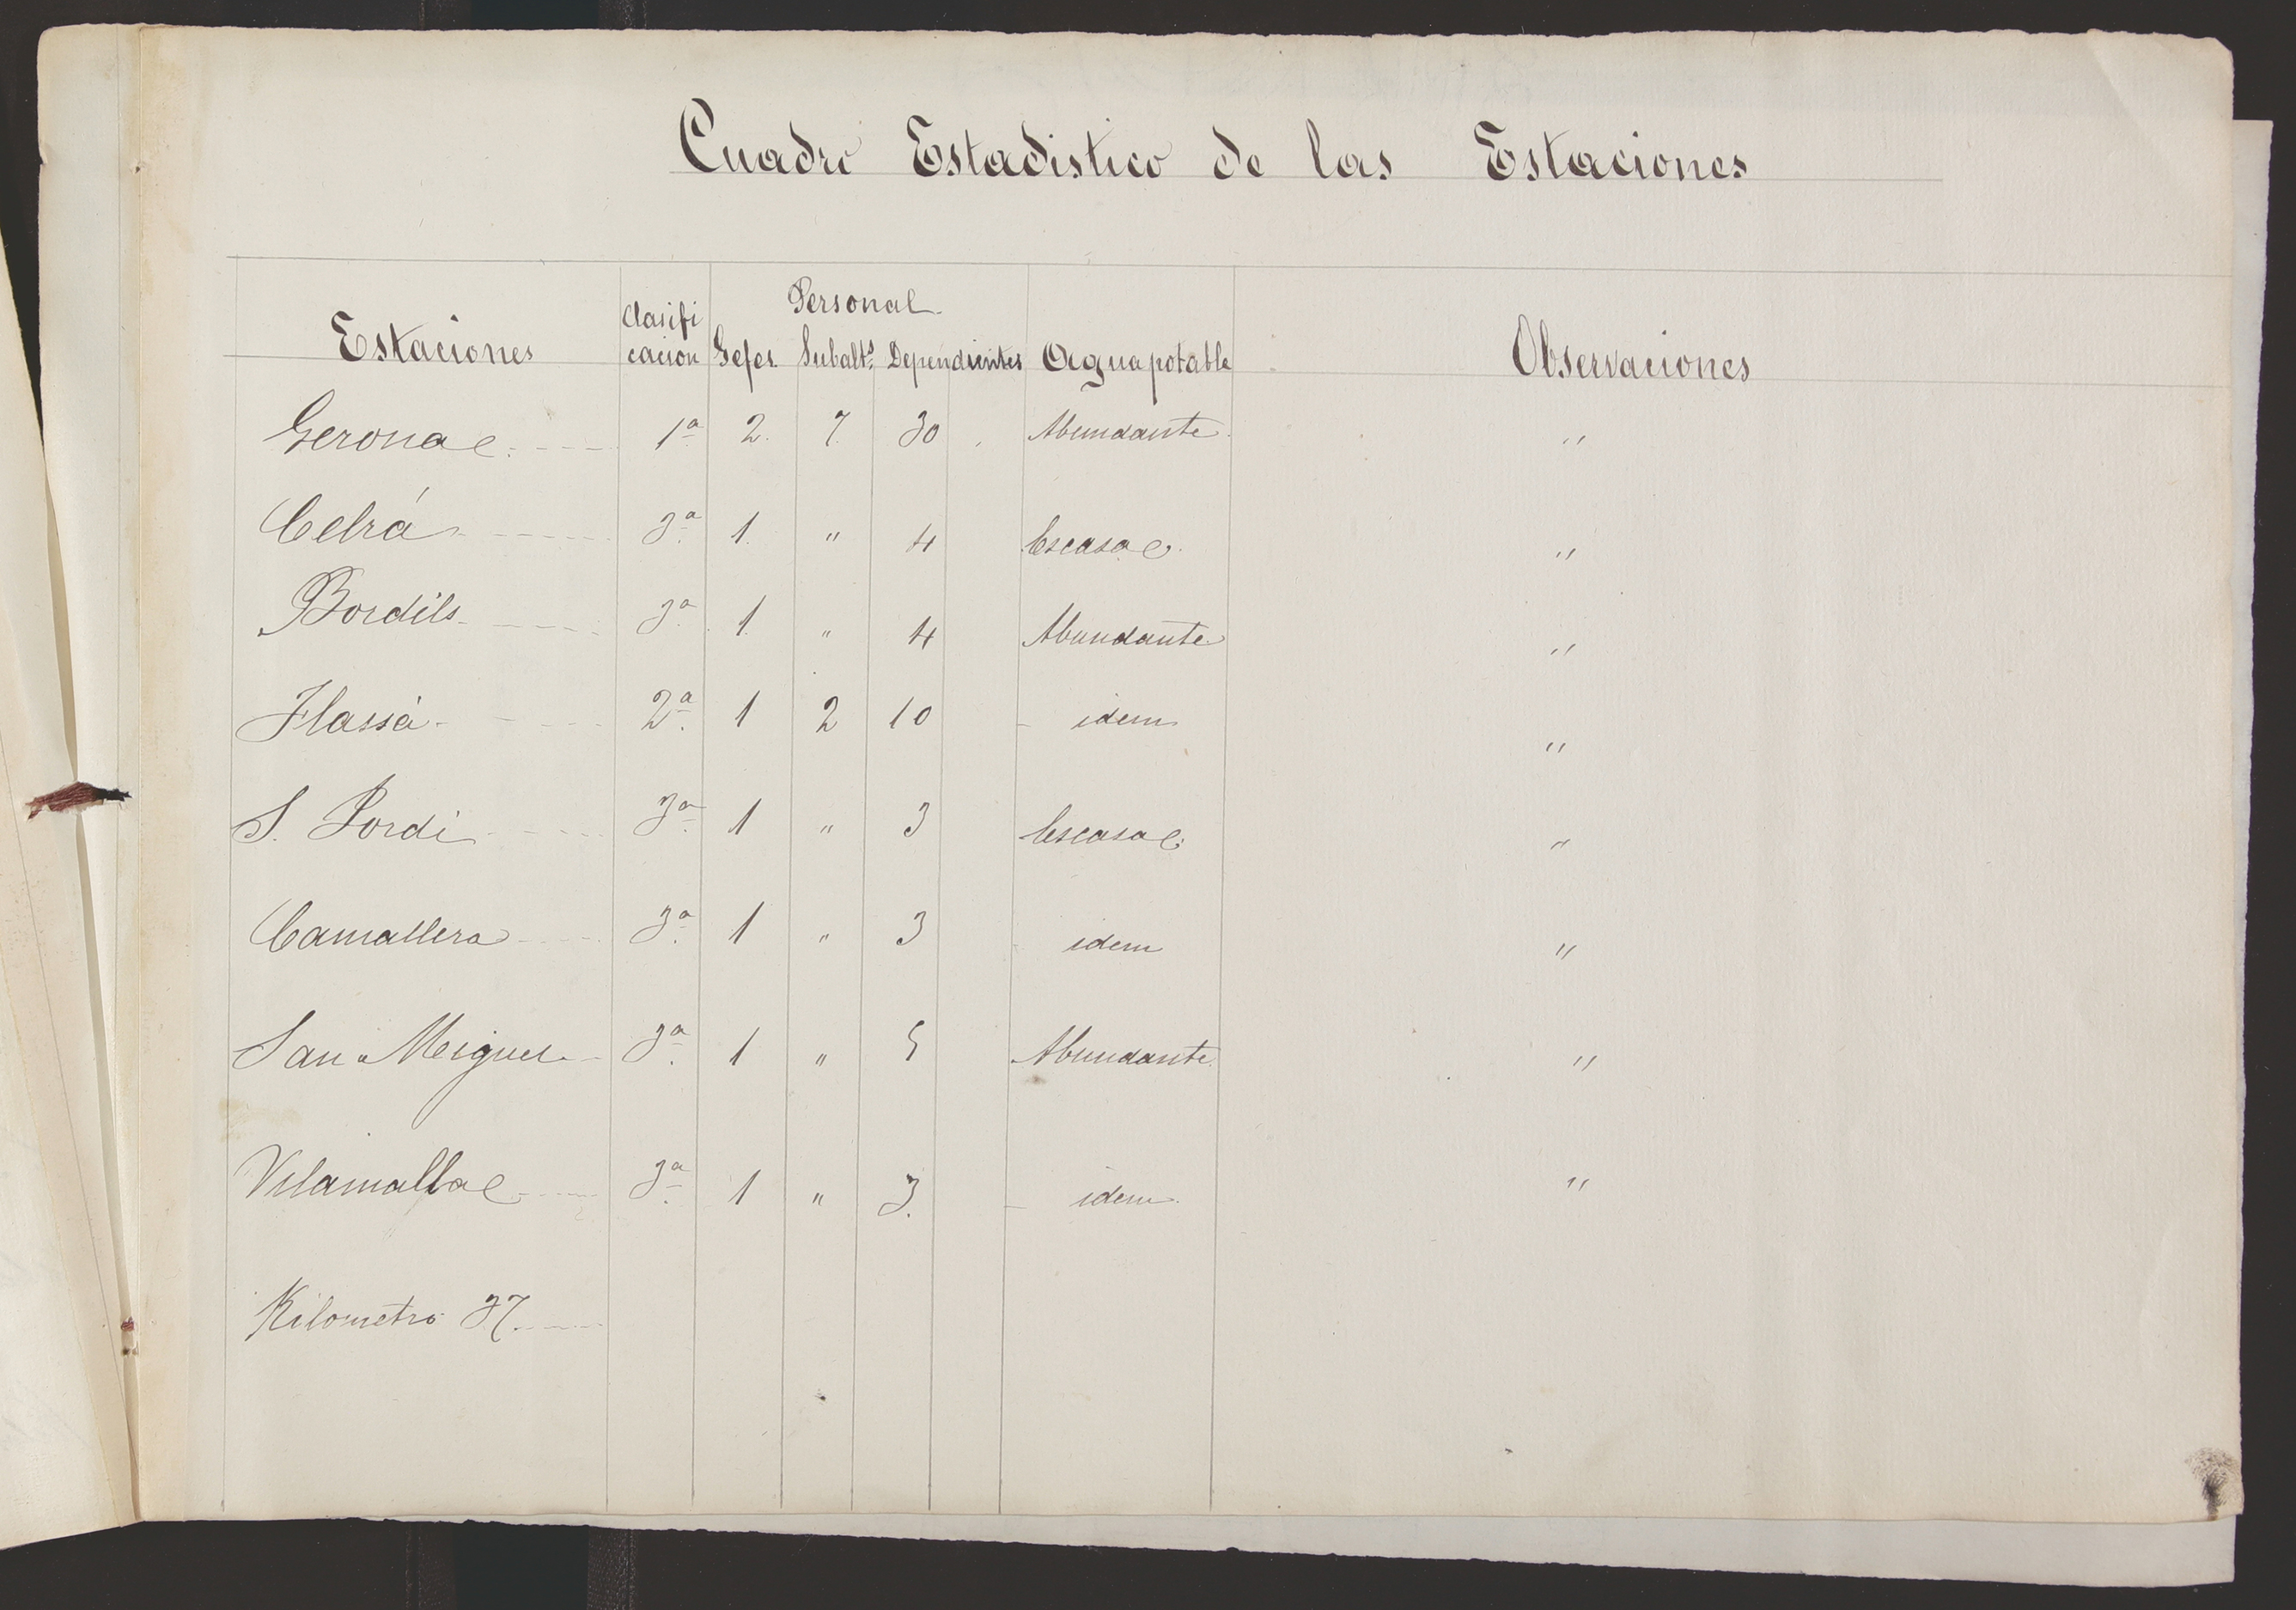 Cuadro Estadistico de las Estaciones
Estaciones Clasificacion Personal Gefes Subalt.s Dependientes Agua potable Observaciones
Gerona 1ª 2. 7. 30 Abundante "
Celrá 3ª 1. " 4 Escasa "
Bordils 3ª 1. " 4 Abundante "
Flassá 2ª 1 2 10 idem "
S. Jordi 3ª 1 " 3 Escasa "
Camallera 3ª 1 " 3 idem "
San Miguel 3ª 1 " 5 Abundante "
Vilamalla 3ª 1 " 3. idem "
Kilometro 37